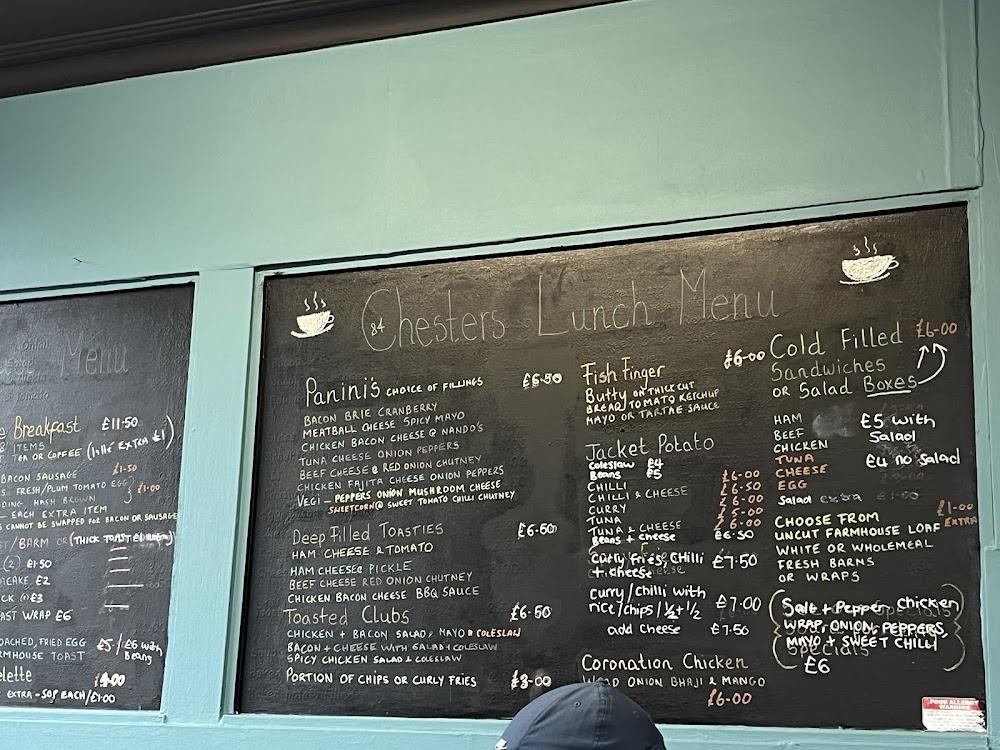 Menu
Breakfast £11.50
8 ITEMS
TEA OR COFFEE (latte EXTRA £1)
BACON SAUSAGE £1.50
FRESH/PLUM TOMATO EGG
PUDDING HASH BROWN £1.00
EACH EXTRA ITEM
CANNOT BE SWAPPED FOR BACON OR SAUSAGE
/BARM OR (THICK TOAST
(2) £1.50
CAKE £2
£3
WRAP £6
POACHED, FRIED EGG £5./£6 with
FARMHOUSE TOAST Beans
elette
EXTRA - 50P EACH/£1.00
84 Chesters Lunch Menu
Panini's CHOICE OF FILLINGS £6.50
BACON BRIE CRANBERRY
MEATBALL CHEESE SPICY MAYO
CHICKEN BACON CHEESE & NANDO'S
TUNA CHEESE ONION PEPPERS
BEEF CHEESE & RED ONION CHUTNEY
CHICKEN FAJITA CHEESE ONION PEPPERS
VEGI - PEPPERS ONION MUSHROOM CHEESE
SWEETCORN & SWEET TOMATO CHILLI CHUTNEY
Deep Filled TOASTIES £6.50
HAM CHEESE & TOMATO
HAM CHEESE & PICKLE
BEEF CHEESE RED ONION CHUTNEY
CHICKEN BACON CHEESE BBQ SAUCE
Toasted Clubs £6.50
CHICKEN + BACON SALAD, MAYO & COLESLAW
BACON + CHEESE WITH SALAD + COLESLAW
SPICY CHICKEN SALAD & COLESLAW
PORTION OF CHIPS OR CURLY FRIES £3.00
Fish Finger £6.00
Butty ON THICK CUT
BREAD TOMATO KETCHUP
MAYO OR TARTAR SAUCE
Jacket Potato
Coleslaw £4
Beans £5
CHILLI £6.00
CHILLI & CHEESE £6.50
CURRY £6.00
TUNA £5.00
TUNA & CHEESE £6.00
Beans + cheese £6.50
Curly fries, Chilli £7.50
+ cheese
curry/chilli with
rice/chips/½+½ £7.00
add cheese £7.50
Coronation Chicken
ONION BHAJI & MANGO
£6.00
Cold Filled £6.00
Sandwiches
OR Salad Boxes
HAM
BEEF
CHICKEN
TUNA
CHEESE
EGG
£5 with
Salad
£4 no salad
Salad extra £1.00
CHOOSE FROM £1.00
UNCUT FARMHOUSE LOAF EXTRA
WHITE OR WHOLEMEAL
FRESH BARMS
OR WRAPS
Salt + Pepper chicken
WRAP, ONION, PEPPERS,
MAYO + SWEET CHILLI
Specials
£6
FOOD ALLERGY
WARNING